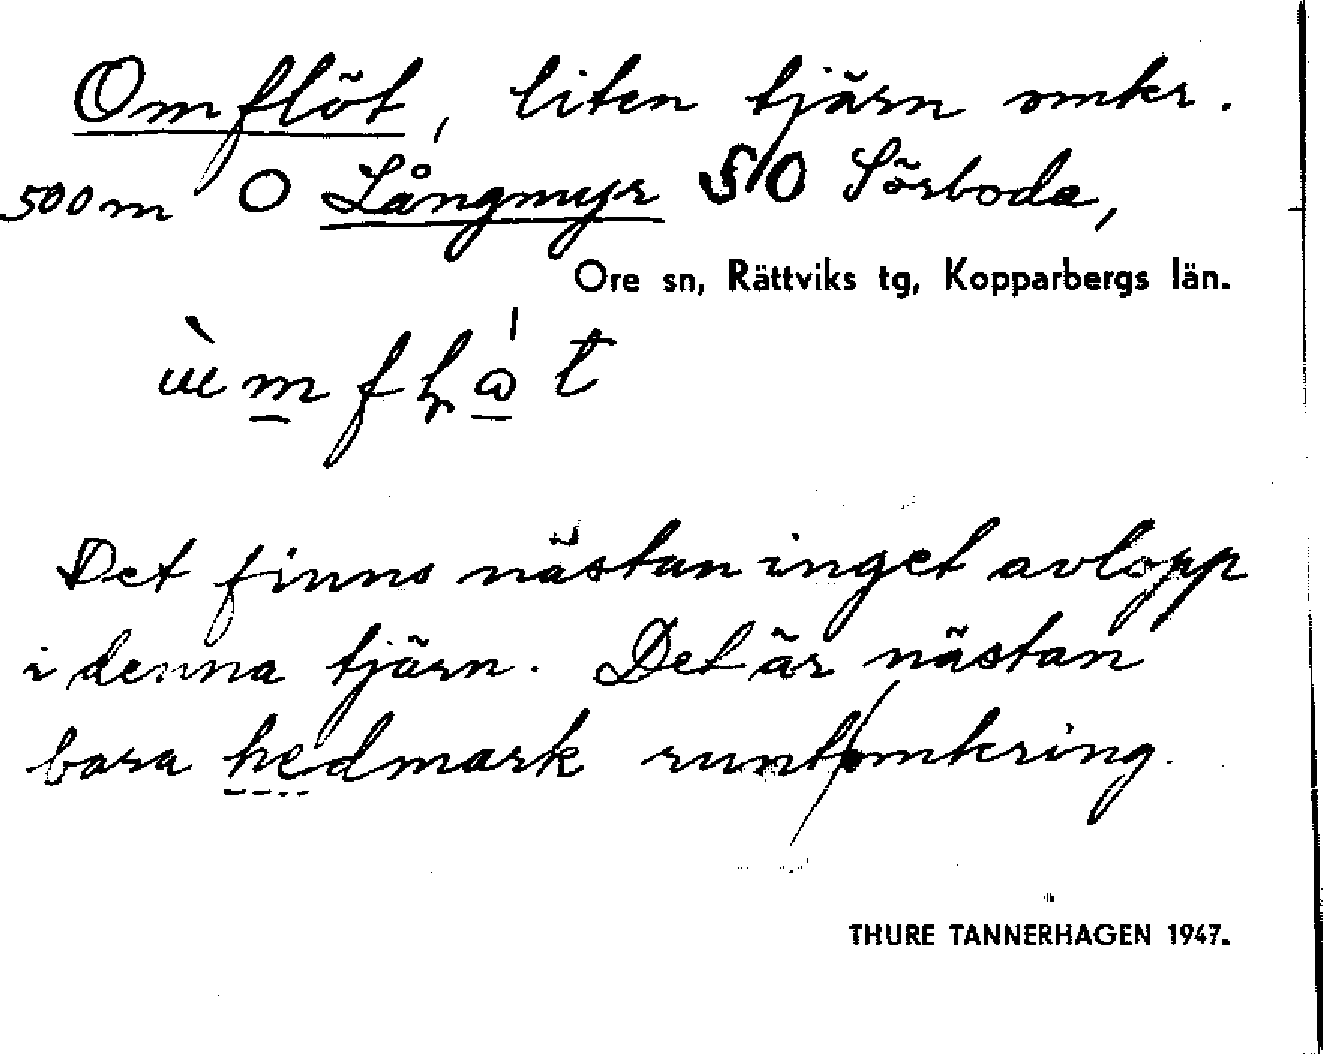 Omflöt, liten tjärn omkr.
500 m O Långmyr SO Sörboda,
Ore sn, Rättviks tg, Kopparbergs län.
Det finns nästan inget avlopp
i denna tjärn. Det är nästan
bara hedmark runt omkring.
THURE TANNERHAGEN 1947.